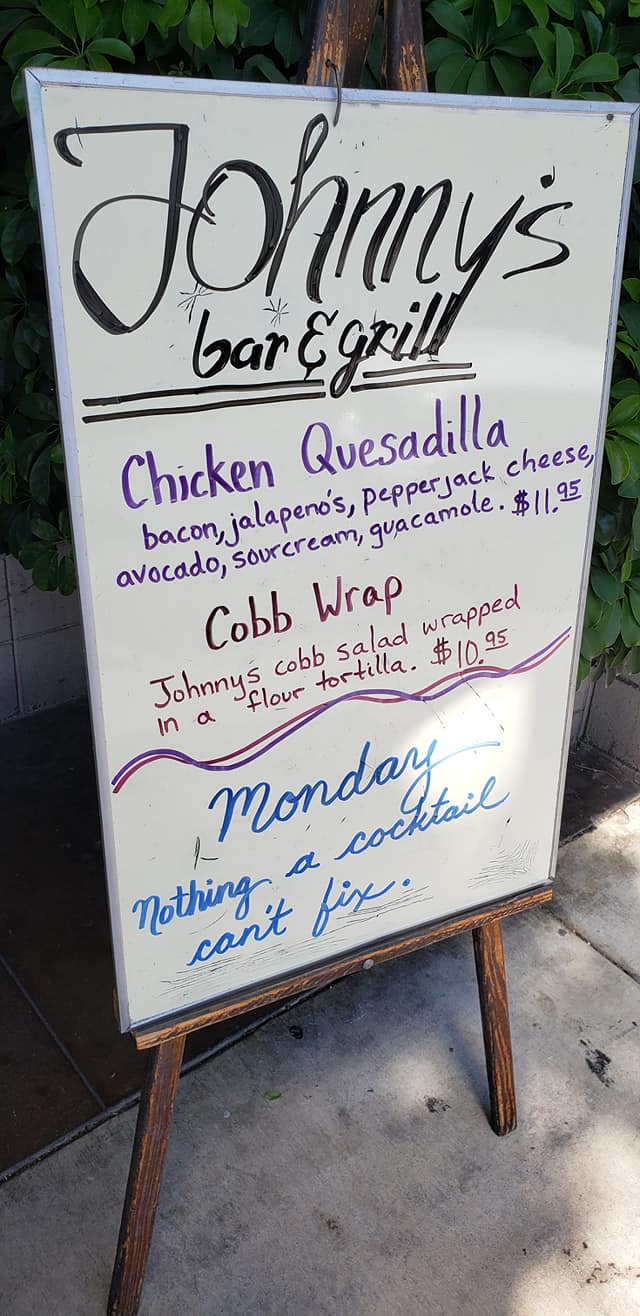 Johnny's
bar & grill
Chicken Quesadilla
bacon, jalapeno's, pepperjack cheese,
avocado, sourcream, guacamole. $11.95
Cobb Wrap
Johnny's cobb salad wrapped
in a flour tortilla. $10.95
Monday
Nothing a cocktail
can't fix.